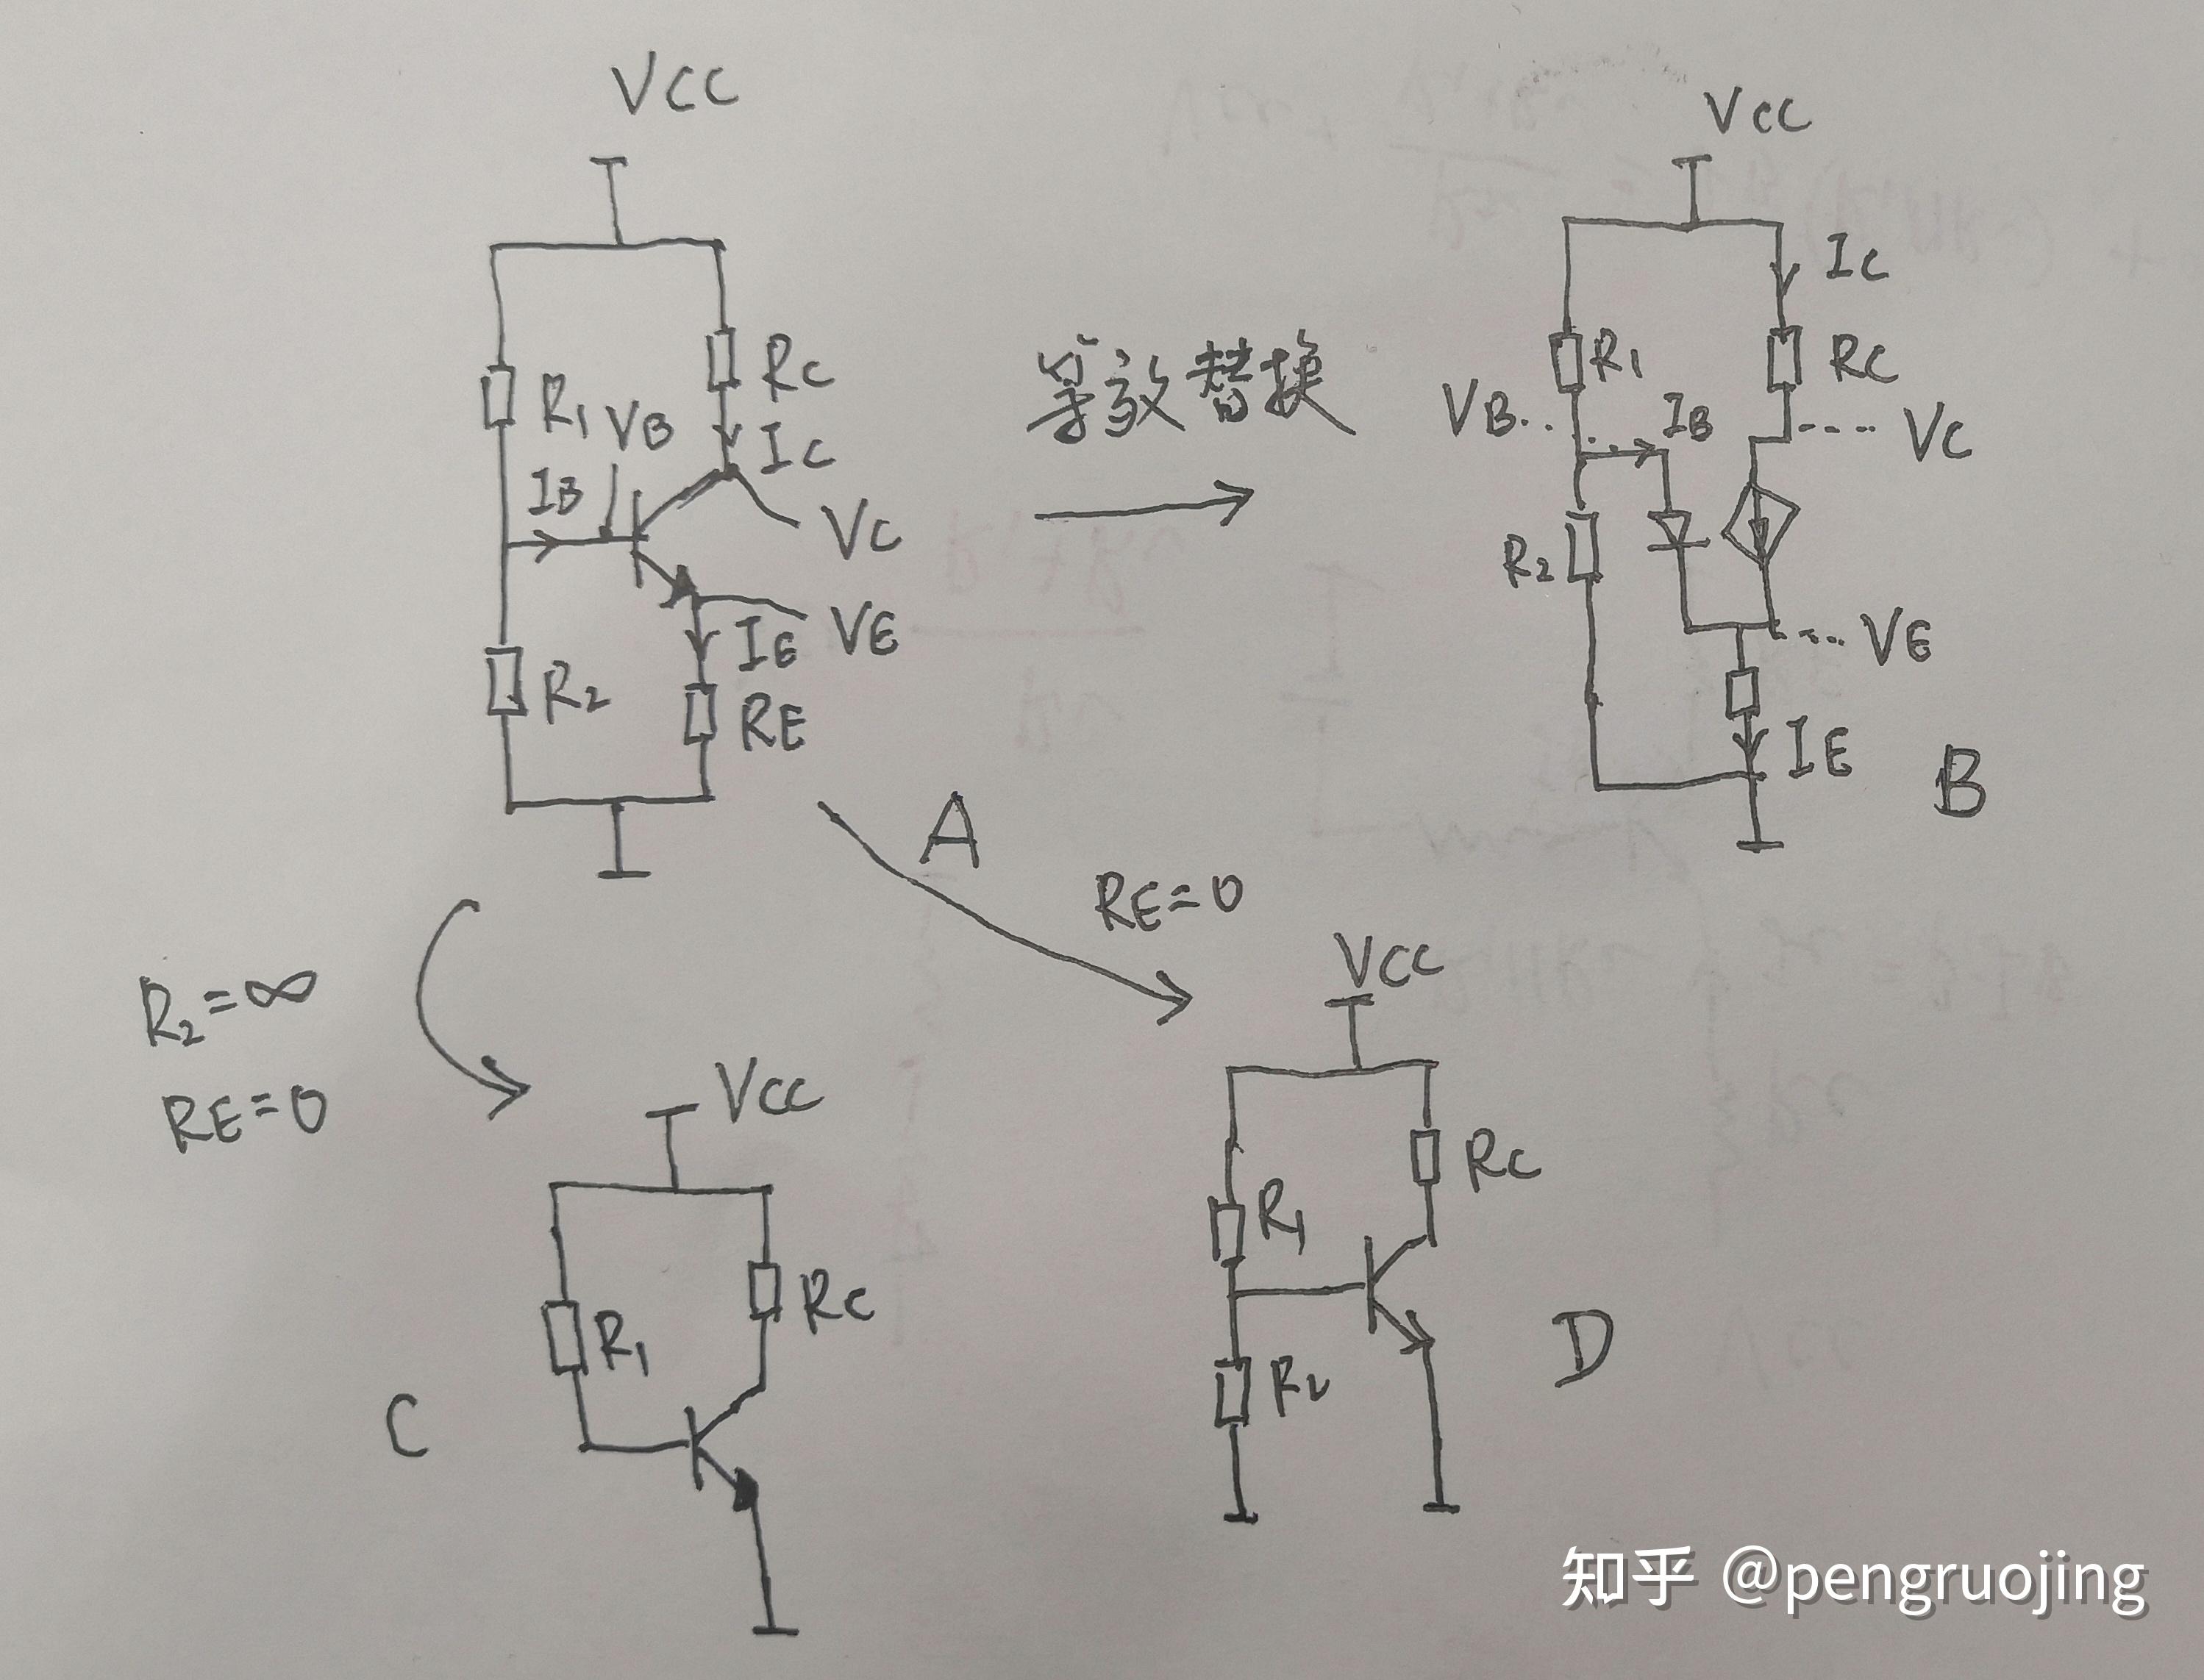 VCC
RC
R1
VB
IC
IB
VC
VE
IE
R2
RE
等效替换
VCC
IC
R1
RC
VB
IB
VC
R2
VE
IE
B
A
RE=0
R2=∞
RE=0
VCC
RC
R1
C
VCC
RC
R1
R2
D
知乎 @pengruojing